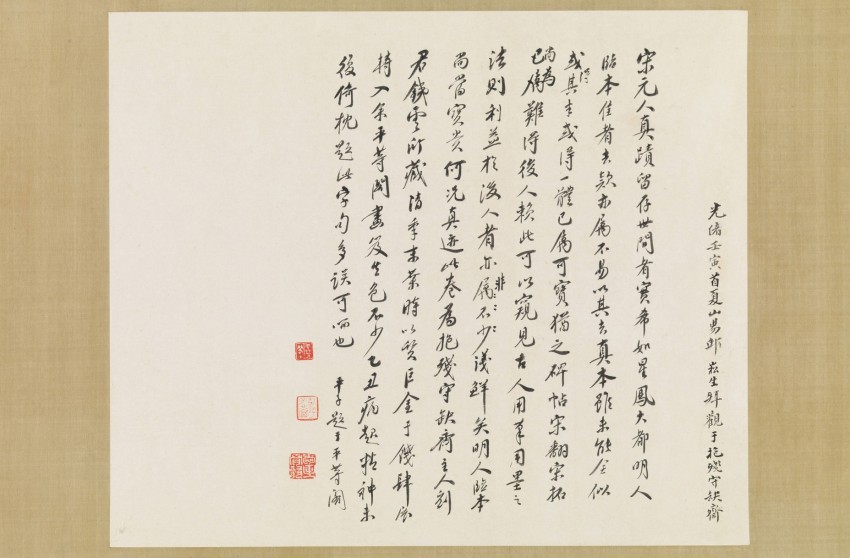 光緒壬寅首夏山陽邱崧生拜觀于抱殘守缺齋
宋元人真蹟留存世間者實希如星鳳大都明人
臨本佳者去款亦屬不易以其去真本雖未能全似
或得其半或得一體已屬可寶猶之碑帖宋翻宋拓
尚為已屬難得後人賴此可以窺見古人用筆用墨之
法則利益於後人者亦屬非淺鮮矣明人臨本
尚當寶貴何況真迹此卷為抱殘守缺齋主人劉
君鐵雲所藏清季末葉時以質巨金于錢肆後
持入余平等閣畫笈生色不少乙丑病起精神未
復倚枕題此字句多誤可哂也
平子題于平等閣